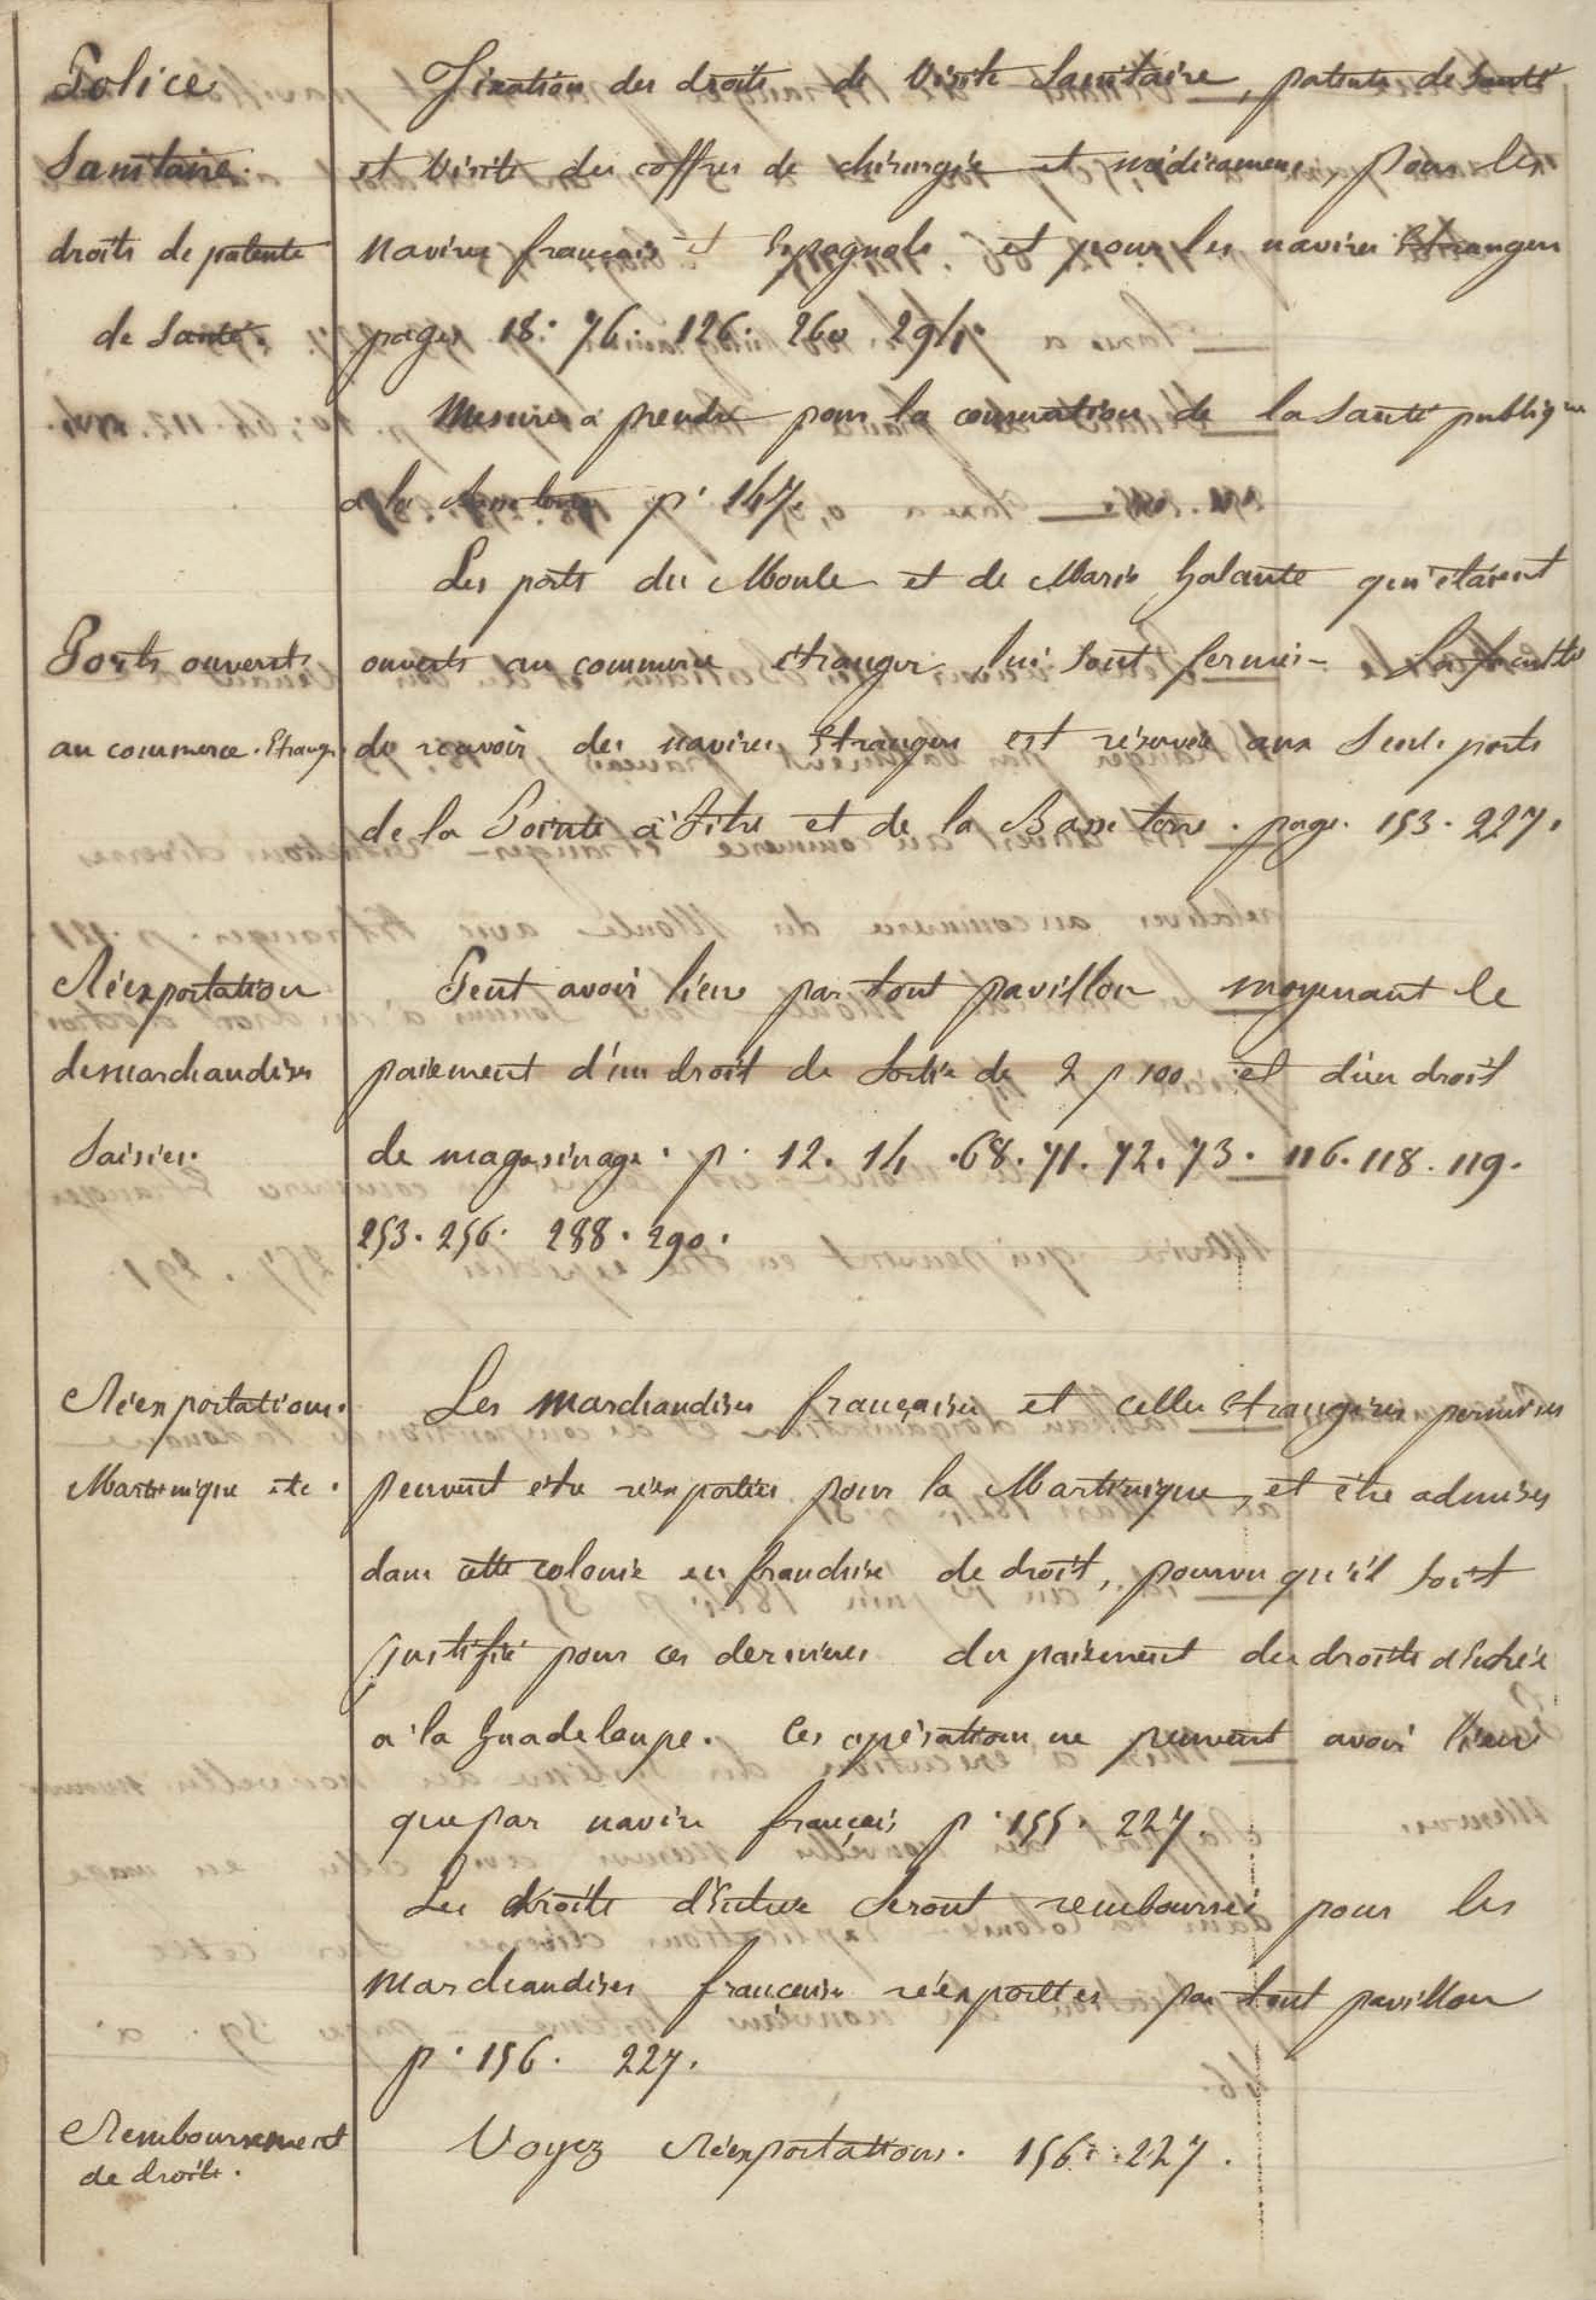 Police
Sanitaire.
droits de patente
de Santé.
Fixation des droits de Visite Sanitaire, patente de Santé
et Visite des coffres de chirurgie et médicamens, pour les
navires français et Espagnols, et pour les navires Etrangers
pages 18. 76. 126. 260. 294.
Mesures à prendre pour la conservation de la Santé publique
à la Basse terre p. 147.
Ports ouverts
au commerce. Etranger
Les ports du Moule et de Marie Galante qui étaient
ouverts au commerce étranger, lui sont fermés - La faculté
de recevoir des navires Etrangers est réservée aux Seuls ports
de la Pointe à Pitre et de la Basse terre. page. 153. 227.
Réexportation
de marchandises
Saisies.
Peut avoir lieu par tout pavillon moyenant le
paiement d'un droit de Sortie de 2 p 100 et d'un droit
de magasinage. p. 12. 14. 68. 71. 72. 73. 116. 118. 119.
253. 256. 288. 290.
Réexportations.
Martinique etc.
Les marchandises françaises et celles Etrangères permises
peuvent être réexportées pour la Martinique, et être admises
dans cette colonie en franchise de droit, pourvu qu'il soit
justifié pour ces dernières du paiement des droits d'Entrée
à la Guadeloupe. Ces opérations ne peuvent avoir lieu
que par navire français p. 155. 227.
Les droits d'Entrée Seront remboursés pour les
marchandises françaises réexportées par tout pavillon
p. 156. 227.
Remboursement
de droits.
Voyez Réexportations. 156. 227.